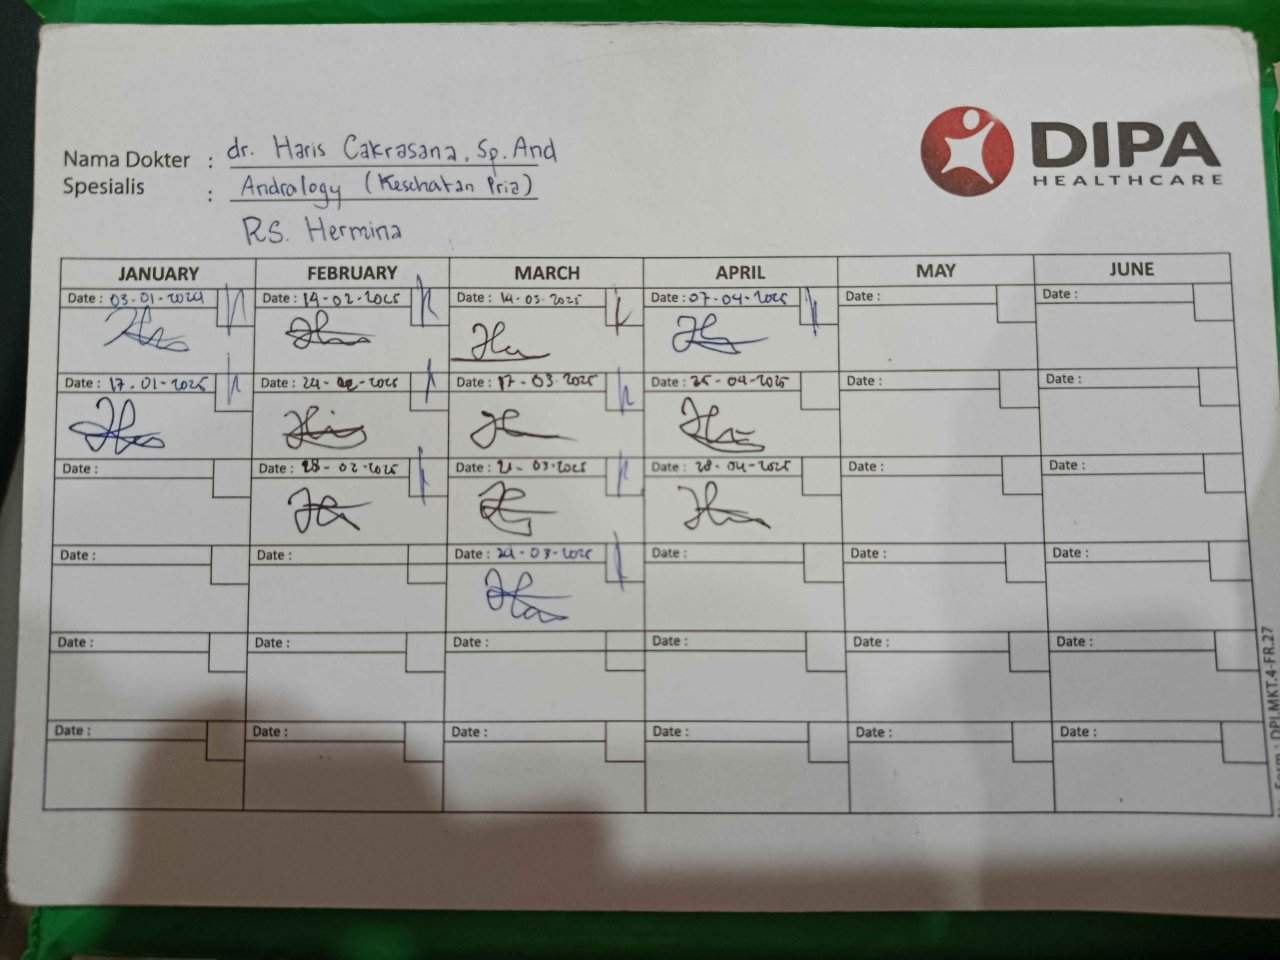 DIPA
HEALTHCARE
Nama Dokter : dr. Haris Cakrasana, Sp.And
Spesialis : Andralogy (Kesehatan Pria)
RS. Hermina
JANUARY FEBRUARY MARCH APRIL MAY JUNE
Date : 03-01-2024 Date : 14-02-2025 Date : 14-03-2025 Date : 07-04-2025 Date : Date :
Date : 17-01-2025 Date : 24-02-2025 Date : 17-03-2025 Date : 25-04-2025 Date : Date :
Date : Date : 28-02-2025 Date : 21-03-2025 Date : 28-04-2025 Date : Date :
Date : Date : Date : 24-03-2025 Date : Date : Date :
Date : Date : Date : Date : Date : Date :
Date : Date : Date : Date : Date : Date :
Form : DPI.MKT.4-FR.27